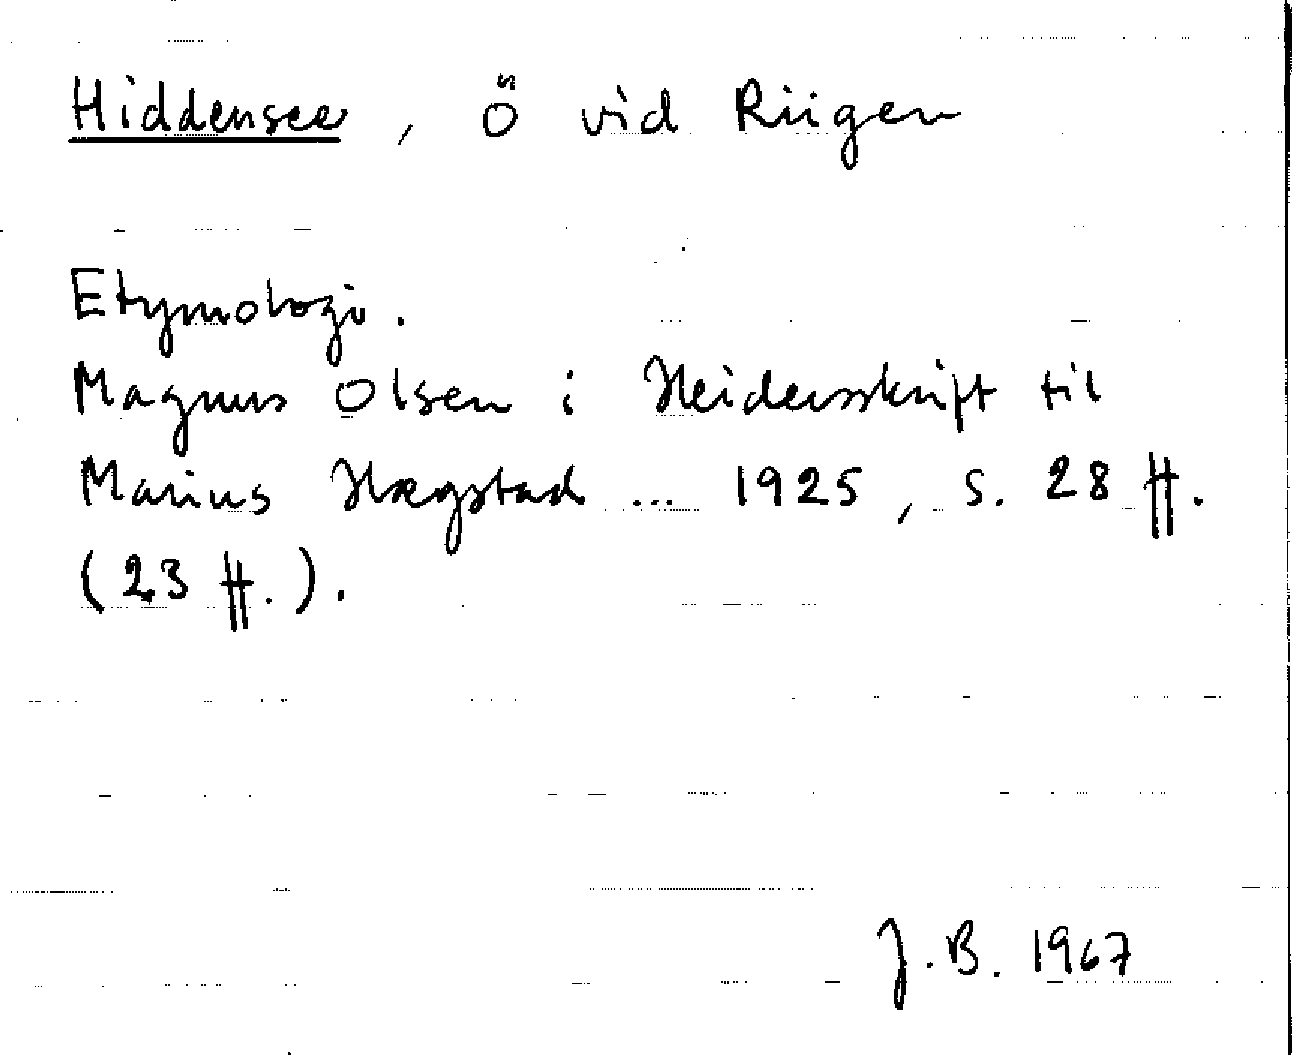 Hiddensee, ö vid Rügen
Etymologi.
Magnus Olsen i Heidersskrift til
Marius Hægstad ... 1925, s. 28 ff.
(23 ff.).
J.B. 1967